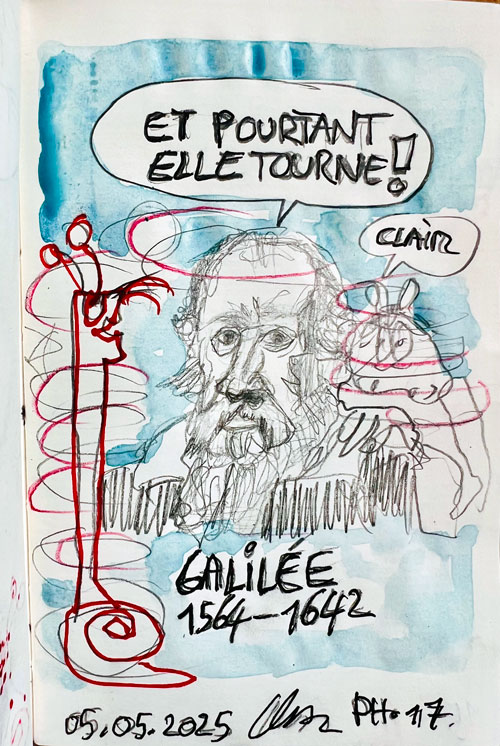 ET POURTANT
ELLE TOURNE!
CLAIR
GALILÉE
1564-1642
05.05.2025
PH.17.